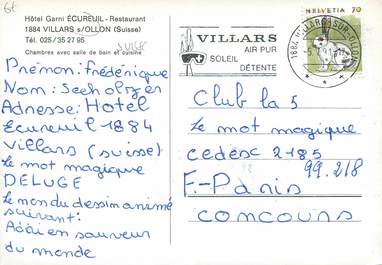 Hôtel Garni ÉCUREUIL - Restaurant
1884 VILLARS s/OLLON (Suisse)
Tél. 025/35 27 95
SUISSE
Chambres avec salle de bain et cuisine
Prénom: Frédérique
Nom: Seeholzer
Adresse: Hotel
Ecureuil 1884
Villars (suisse)
Le mot magique
DELUGE
Le mon du dessin animé
suivant:
Adai en sauveur
du monde
VILLARS
AIR PUR
SOLEIL
DÉTENTE
1884 VILLARS-SUR-OLLON
HELVETIA 70
Club la 5
Le mot magique
cedesc 2185
99.218
F.-Paris
concours